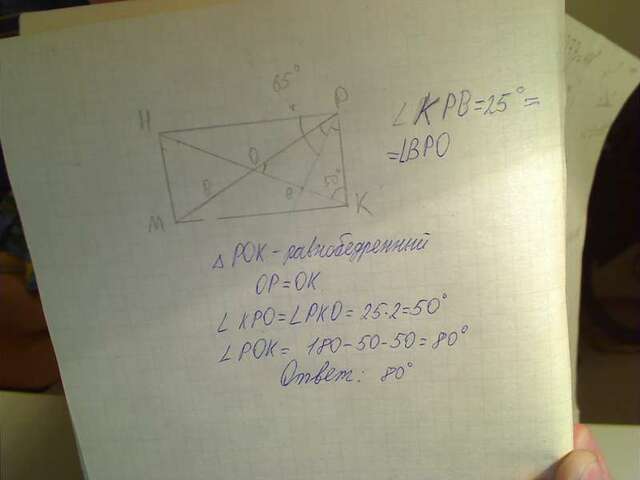 65°
H
P
∠KPB=25°=
=∠BPO
O
B
50°
M
K
△ POK - равнобедренный
OP=OK
∠ KPO=∠PKO= 25·2=50°
∠POK= 180-50-50=80°
Ответ: 80°